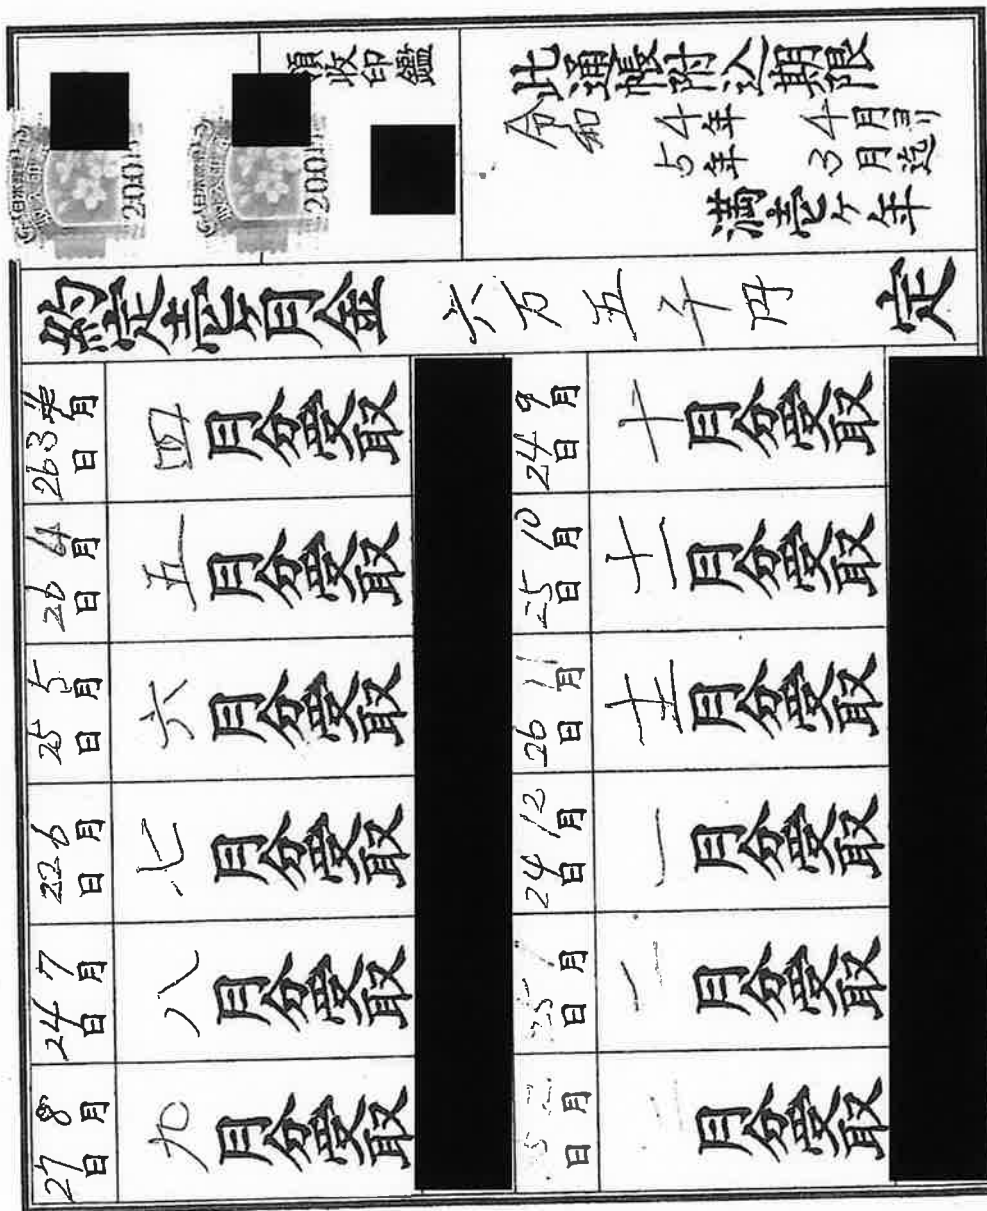 此通帳附込期限
令和 4年 4月ヨリ
5年 3月迄
満壱ケ年
領収印鑑
日本政府
収入印紙
200円
日本政府
収入印紙
200円
約定壱ケ月金 六万五千円 定
3月26日 四月分受取
4月26日 五月分受取
5月25日 六月分受取
6月22日 七月分受取
7月24日 八月分受取
8月27日 九月分受取
9月24日 十月分受取
10月25日 十一月分受取
11月26日 十二月分受取
12月24日 一月分受取
月25日 二月分受取
月 日 月分受取